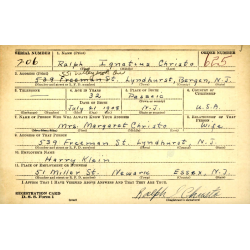 SERIAL NUMBER 1. NAME (Print) ORDER NUMBER
706 Ralph Ignatius Christo 625
2. ADDRESS (Print)
539 Freeman St. Lyndhurst, Bergen, N.J.
3. TELEPHONE 4. AGE IN YEARS 5. PLACE OF BIRTH 6. COUNTRY OF CITIZENSHIP
32 Passaic
DATE OF BIRTH
July 21 1908 N.J. U.S.A.
7. NAME OF PERSON WHO WILL ALWAYS KNOW YOUR ADDRESS 8. RELATIONSHIP OF THAT PERSON
Mrs. Margaret Christo Wife
9. ADDRESS OF THAT PERSON
539 Freeman St. Lyndhurst, N.J.
10. EMPLOYER'S NAME
Harry Klein
11. PLACE OF EMPLOYMENT OR BUSINESS
51 Miller St. Newark Essex, N.J.
I AFFIRM THAT I HAVE VERIFIED ABOVE ANSWERS AND THAT THEY ARE TRUE.
REGISTRATION CARD
D. S. S. Form 1
Ralph Christo